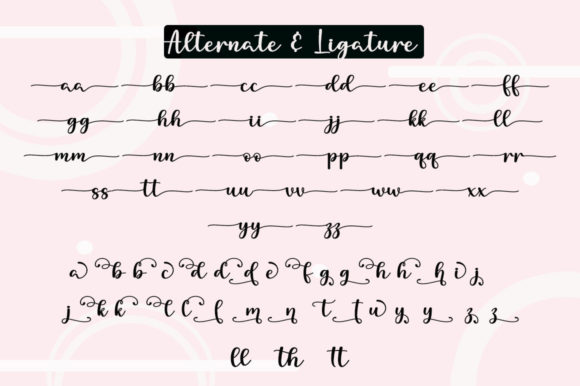 Alternate & Ligature
aa bb cc dd ee ff
gg hh ii jj kk ll
mm nn oo pp qq rr
ss tt uu vv ww xx
yy zz
a b b c d d d e f g g h h h i j
j k k l l l m n t t w y y z z
ll th tt